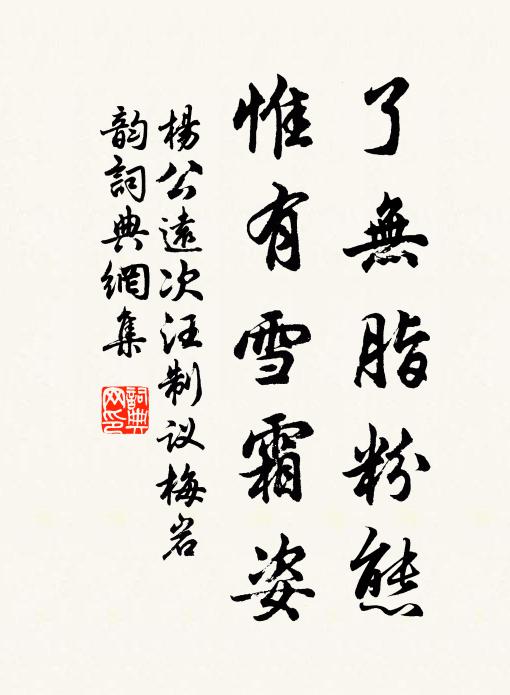 了無脂粉態
惟有雪霜姿
楊公遠次汪制议梅岩
韵詞典網集
詞典
网印